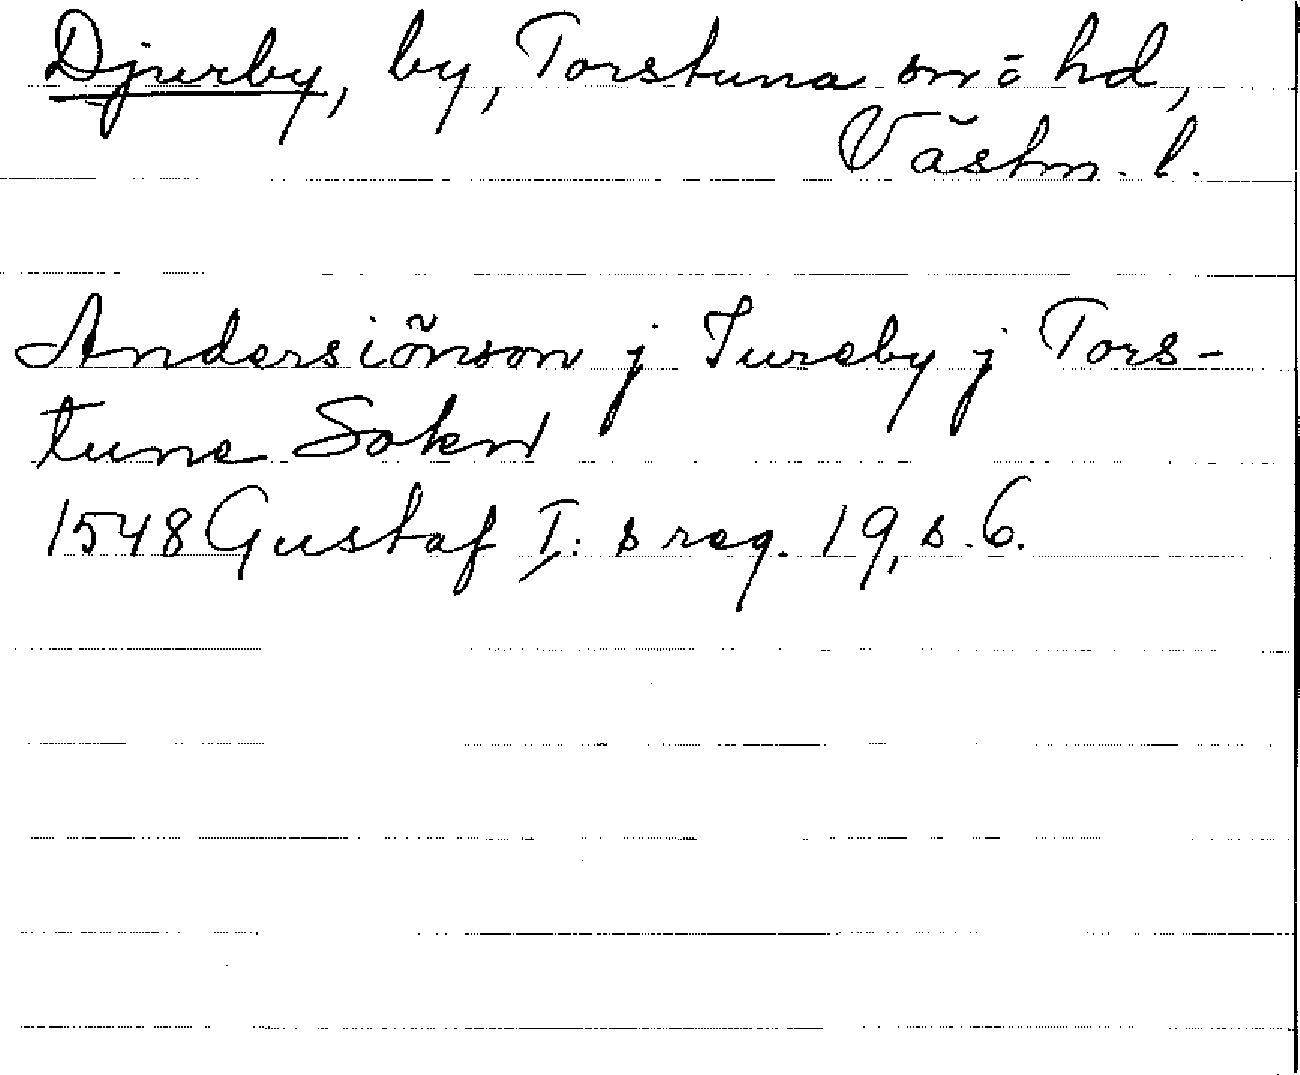 Djurby, by, Torstuna sn o hd,
Västm. l.
Andersiönson j Jureby j Tors-
tune Sokn
1548 Gustaf I: s reg. 19, s. 6.